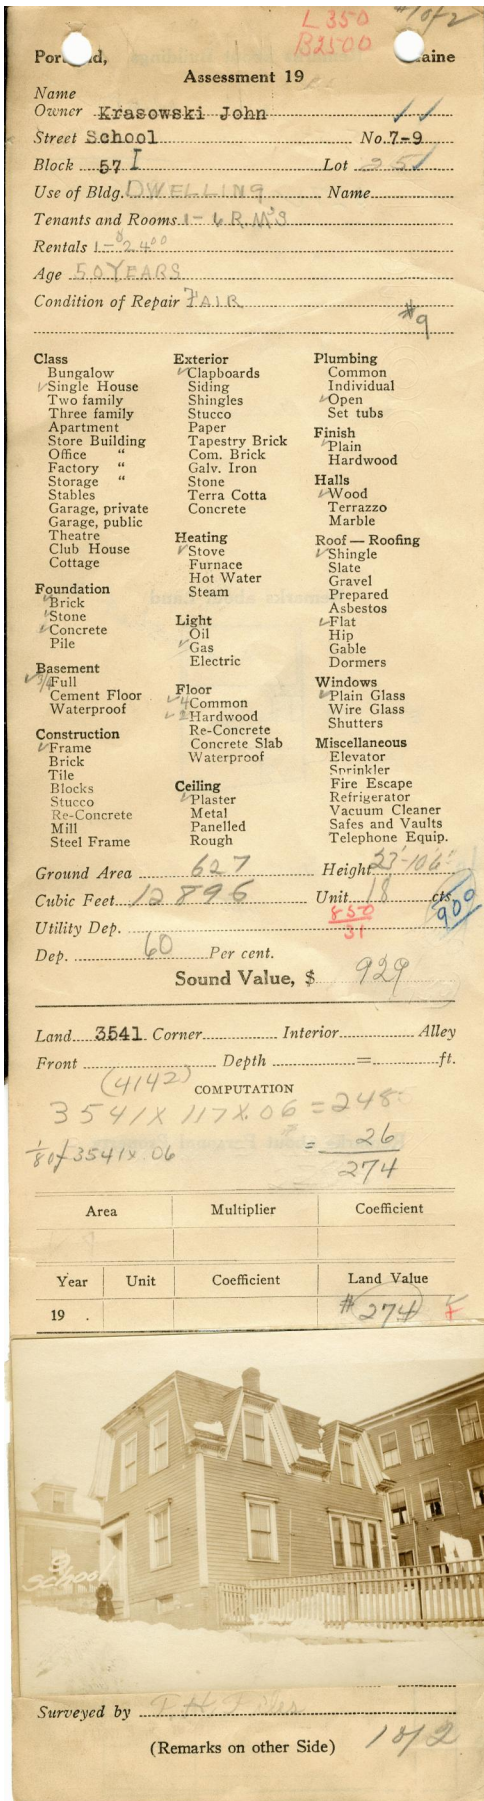 L 350
#1 of 2
B2500
Portland, Maine
Assessment 19
Name
Owner Krasowski John 11
Street School No. 7-9
Block 57 I Lot 25 1
Use of Bldg. DWELLING Name
Tenants and Rooms 1-6 R.M'S
Rentals 1-
Age 50 YEARS
Condition of Repair FAIR
#9
Class
Bungalow
Single House
Two family
Three family
Apartment
Store Building
Office "
Factory "
Storage "
Stables
Garage, private
Garage, public
Theatre
Club House
Cottage
Foundation
Brick
Stone
Concrete
Pile
Basement
3/4 Full
Cement Floor
Waterproof
Construction
Frame
Brick
Tile
Blocks
Stucco
Re-Concrete
Mill
Steel Frame
Exterior
Clapboards
Siding
Shingles
Stucco
Paper
Tapestry Brick
Com. Brick
Galv. Iron
Stone
Terra Cotta
Concrete
Heating
Stove
Furnace
Hot Water
Steam
Light
Oil
Gas
Electric
Floor
4 Common
2 Hardwood
Re-Concrete
Concrete Slab
Waterproof
Ceiling
Plaster
Metal
Panelled
Rough
Plumbing
Common
Individual
Open
Set tubs
Finish
Plain
Hardwood
Halls
Wood
Terrazzo
Marble
Roof — Roofing
Shingle
Slate
Gravel
Prepared
Asbestos
Flat
Hip
Gable
Dormers
Windows
Plain Glass
Wire Glass
Shutters
Miscellaneous
Elevator
Sprinkler
Fire Escape
Refrigerator
Vacuum Cleaner
Safes and Vaults
Telephone Equip.
Ground Area 627 Height
Cubic Feet 12896 Unit 18 cts.
900
850
31
Utility Dep.
Dep. 60 Per cent.
Sound Value, $ 929
Land 3541 Corner Interior Alley
Front Depth = ft.
(4142)
COMPUTATION
3541 X 117 X .06 = 248
1/8 of 3541 X .06 = 26
274
Area Multiplier Coefficient
Year Unit Coefficient Land Value
19 . # 274
9
SCHOOL
Surveyed by
(Remarks on other Side) 1 of 2